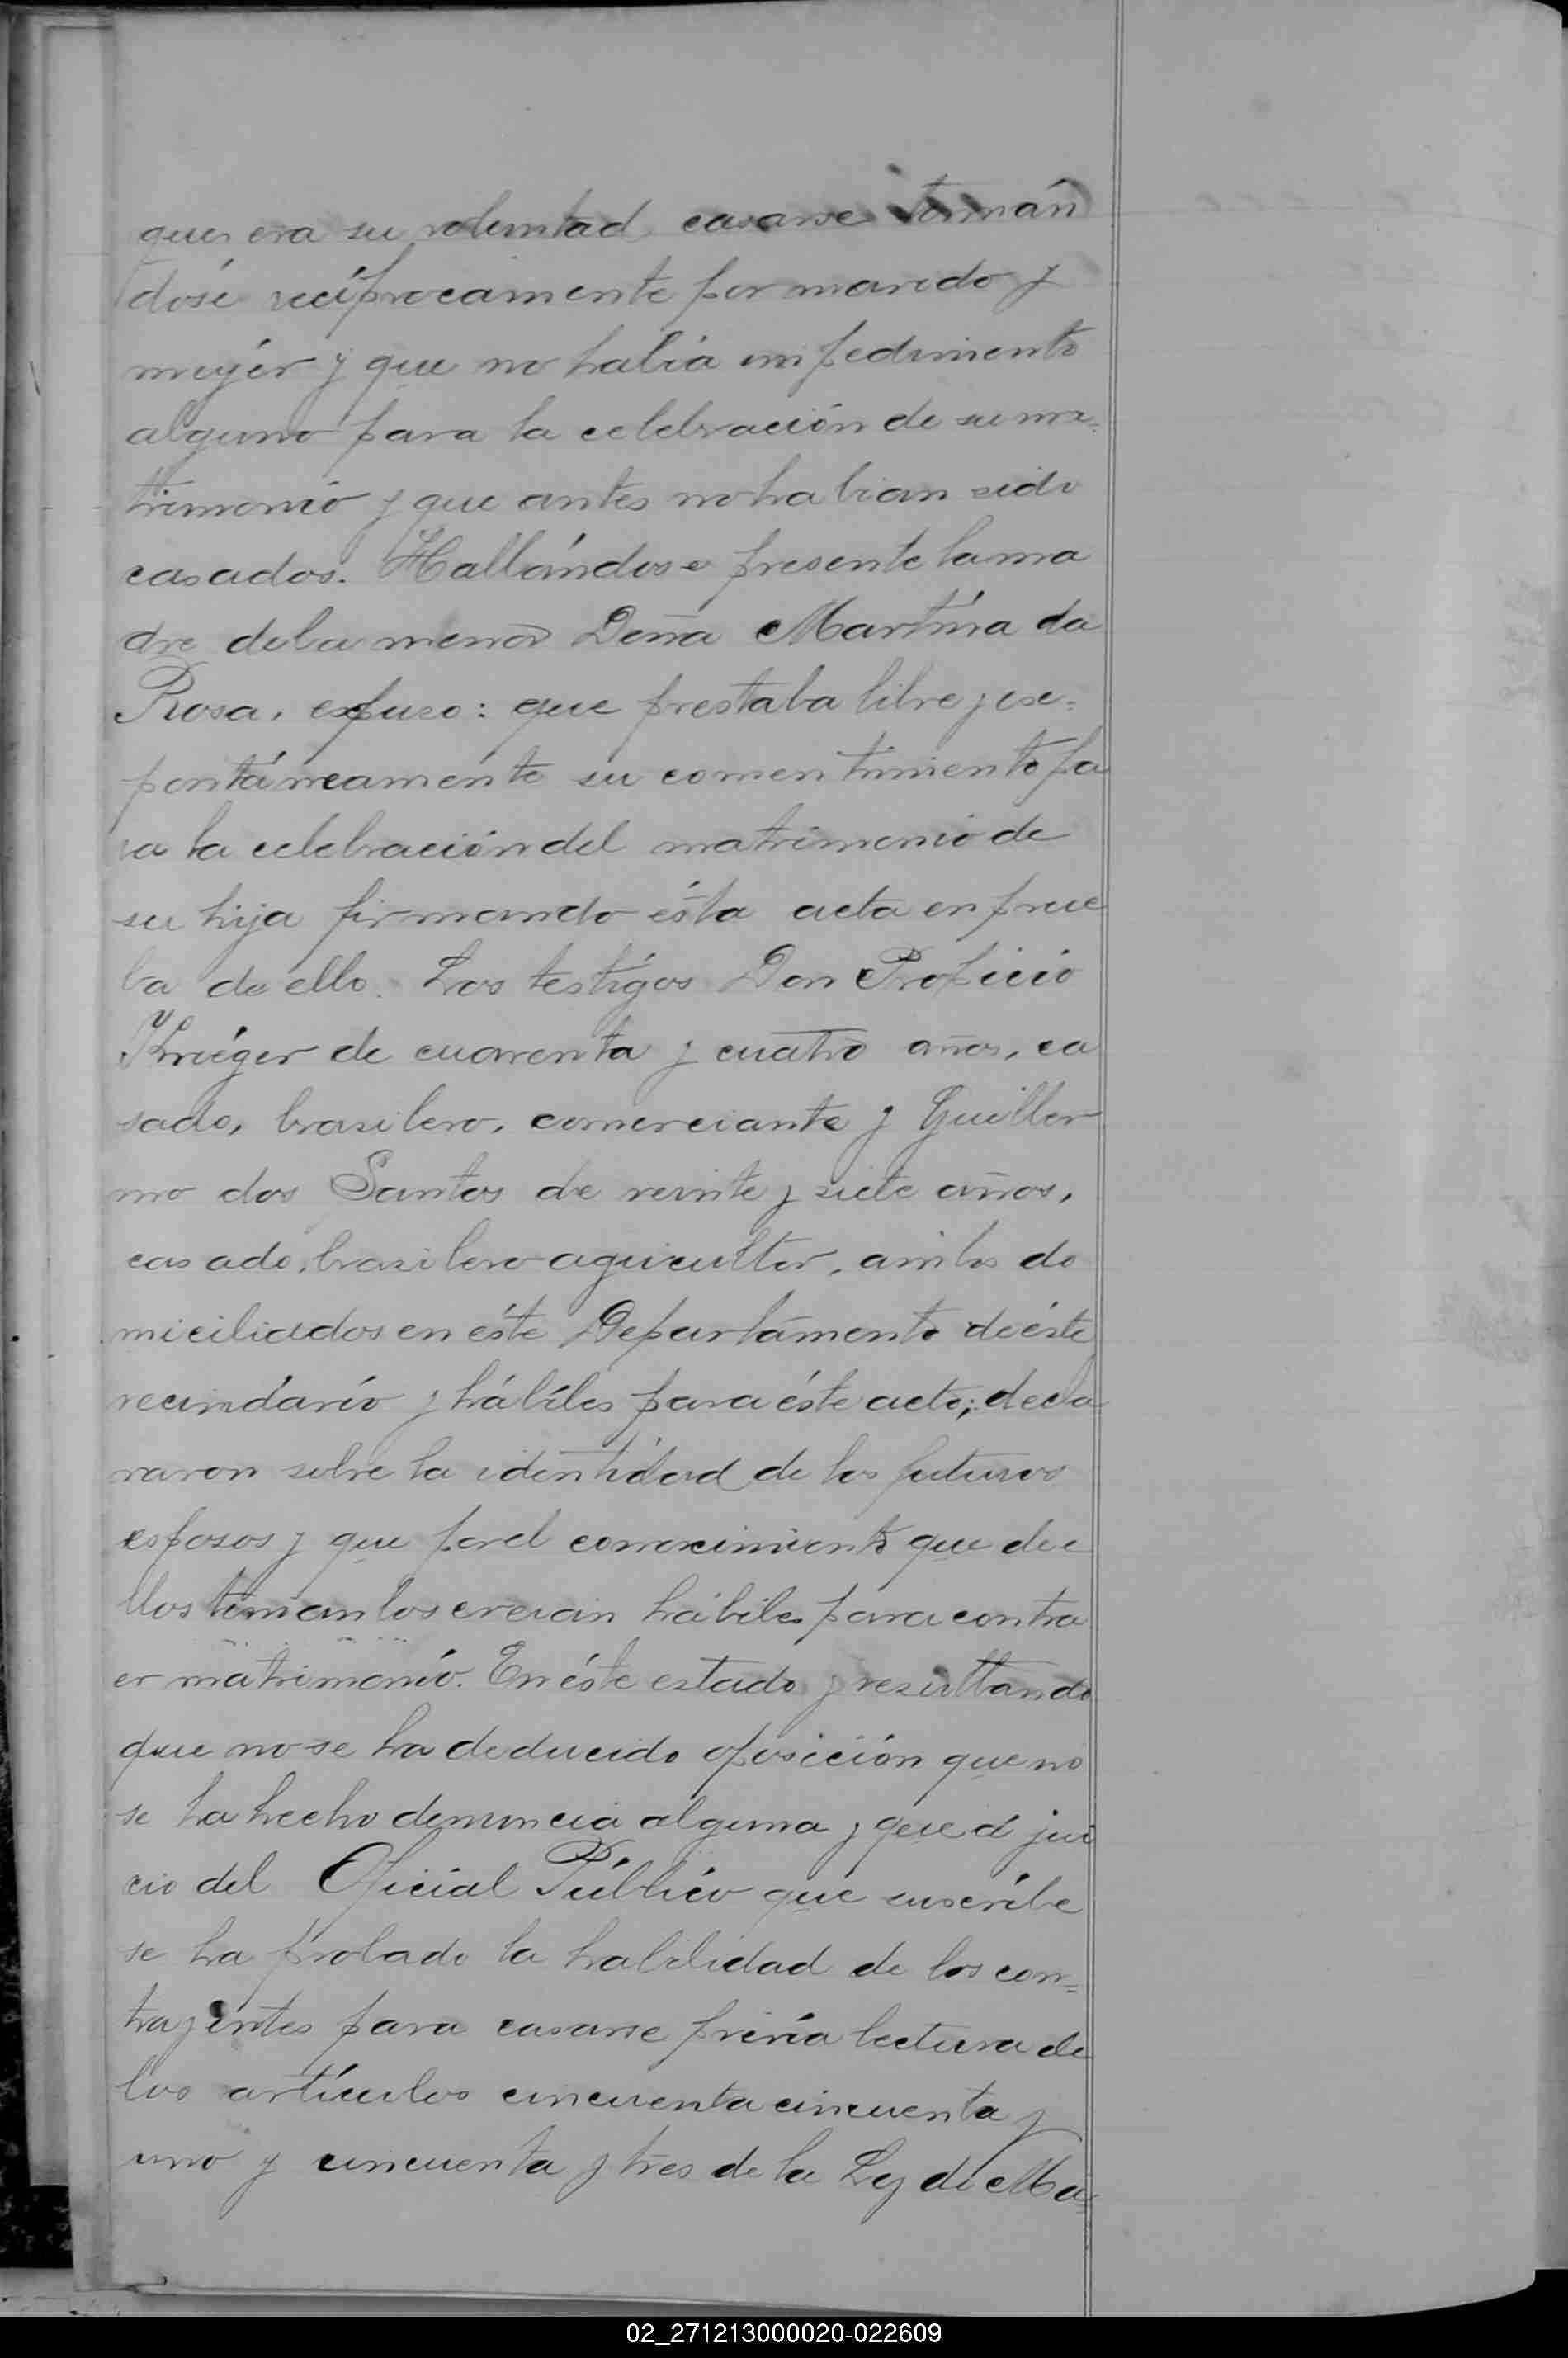 que era su voluntad casarse tomán
dosé recíprocamente por marido y
mujér y que no había impedimento
alguno para la celebración de su ma=
trimonio y que antes no habian sido
casados. Hallándose presente la ma
dre de la menor Doña Martína da
Rosa, espuso: que prestaba libre y es=
pontáneamente su consentimiento pa
ra la celebración del matrimonio de
su hija firmando ésta acta en prue
ba de ello. Los testígos Don Proficio
Kriéger de cuarenta y cuatro años, ca
sado, brasilero, comerciante y Guiller
mo dos Santos de veinte y siete años,
casado, brasilero agricultor, ambos do
miciliados en éste Departámento de éste
vecindário y hábiles para éste acto; decla
raron sobre la identidad de los futuros
esposos y que por el conocimiento que de e
llos tenian los creian hábiles para contra
er matrimonio. En éste estado y resultando
que no se ha deducido oposición que no
se ha hecho denuncia alguna y que á jui
cio del Oficial Público que suscribe
se ha probado la habilidad de los con=
trayentes para casarse prévia lectura de
los artículos cincuenta cincuenta y
uno y cincuenta y tres de la Ley de Ma=
02_271213000020-022609